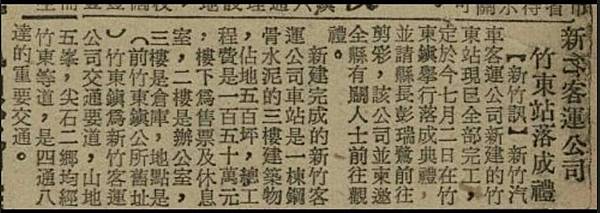 新竹客運公司
竹東站落成禮
【新竹訊】新竹汽
車客運公司新建的竹
東站現已全部完工，
定於今七月二日在竹
東鎮舉行落成典禮，
並請縣長彭瑞鷺前往
剪彩，該公司並柬邀
全縣有關人士前往觀
禮。
新建完成的新竹客
運公司車站是一棟鋼
骨水泥的三樓建築物
，佔地五百坪，總工
程費是一百五十萬元
，樓下爲售票及休息
室，二樓是辦公室，
三樓是倉庫，地點是
（前竹東鎮公所舊址
）竹東鎮爲新竹客運
公司交通要道，山地
五峯，尖石二鄉均經
竹東等道，是四通八
達的重要交通。